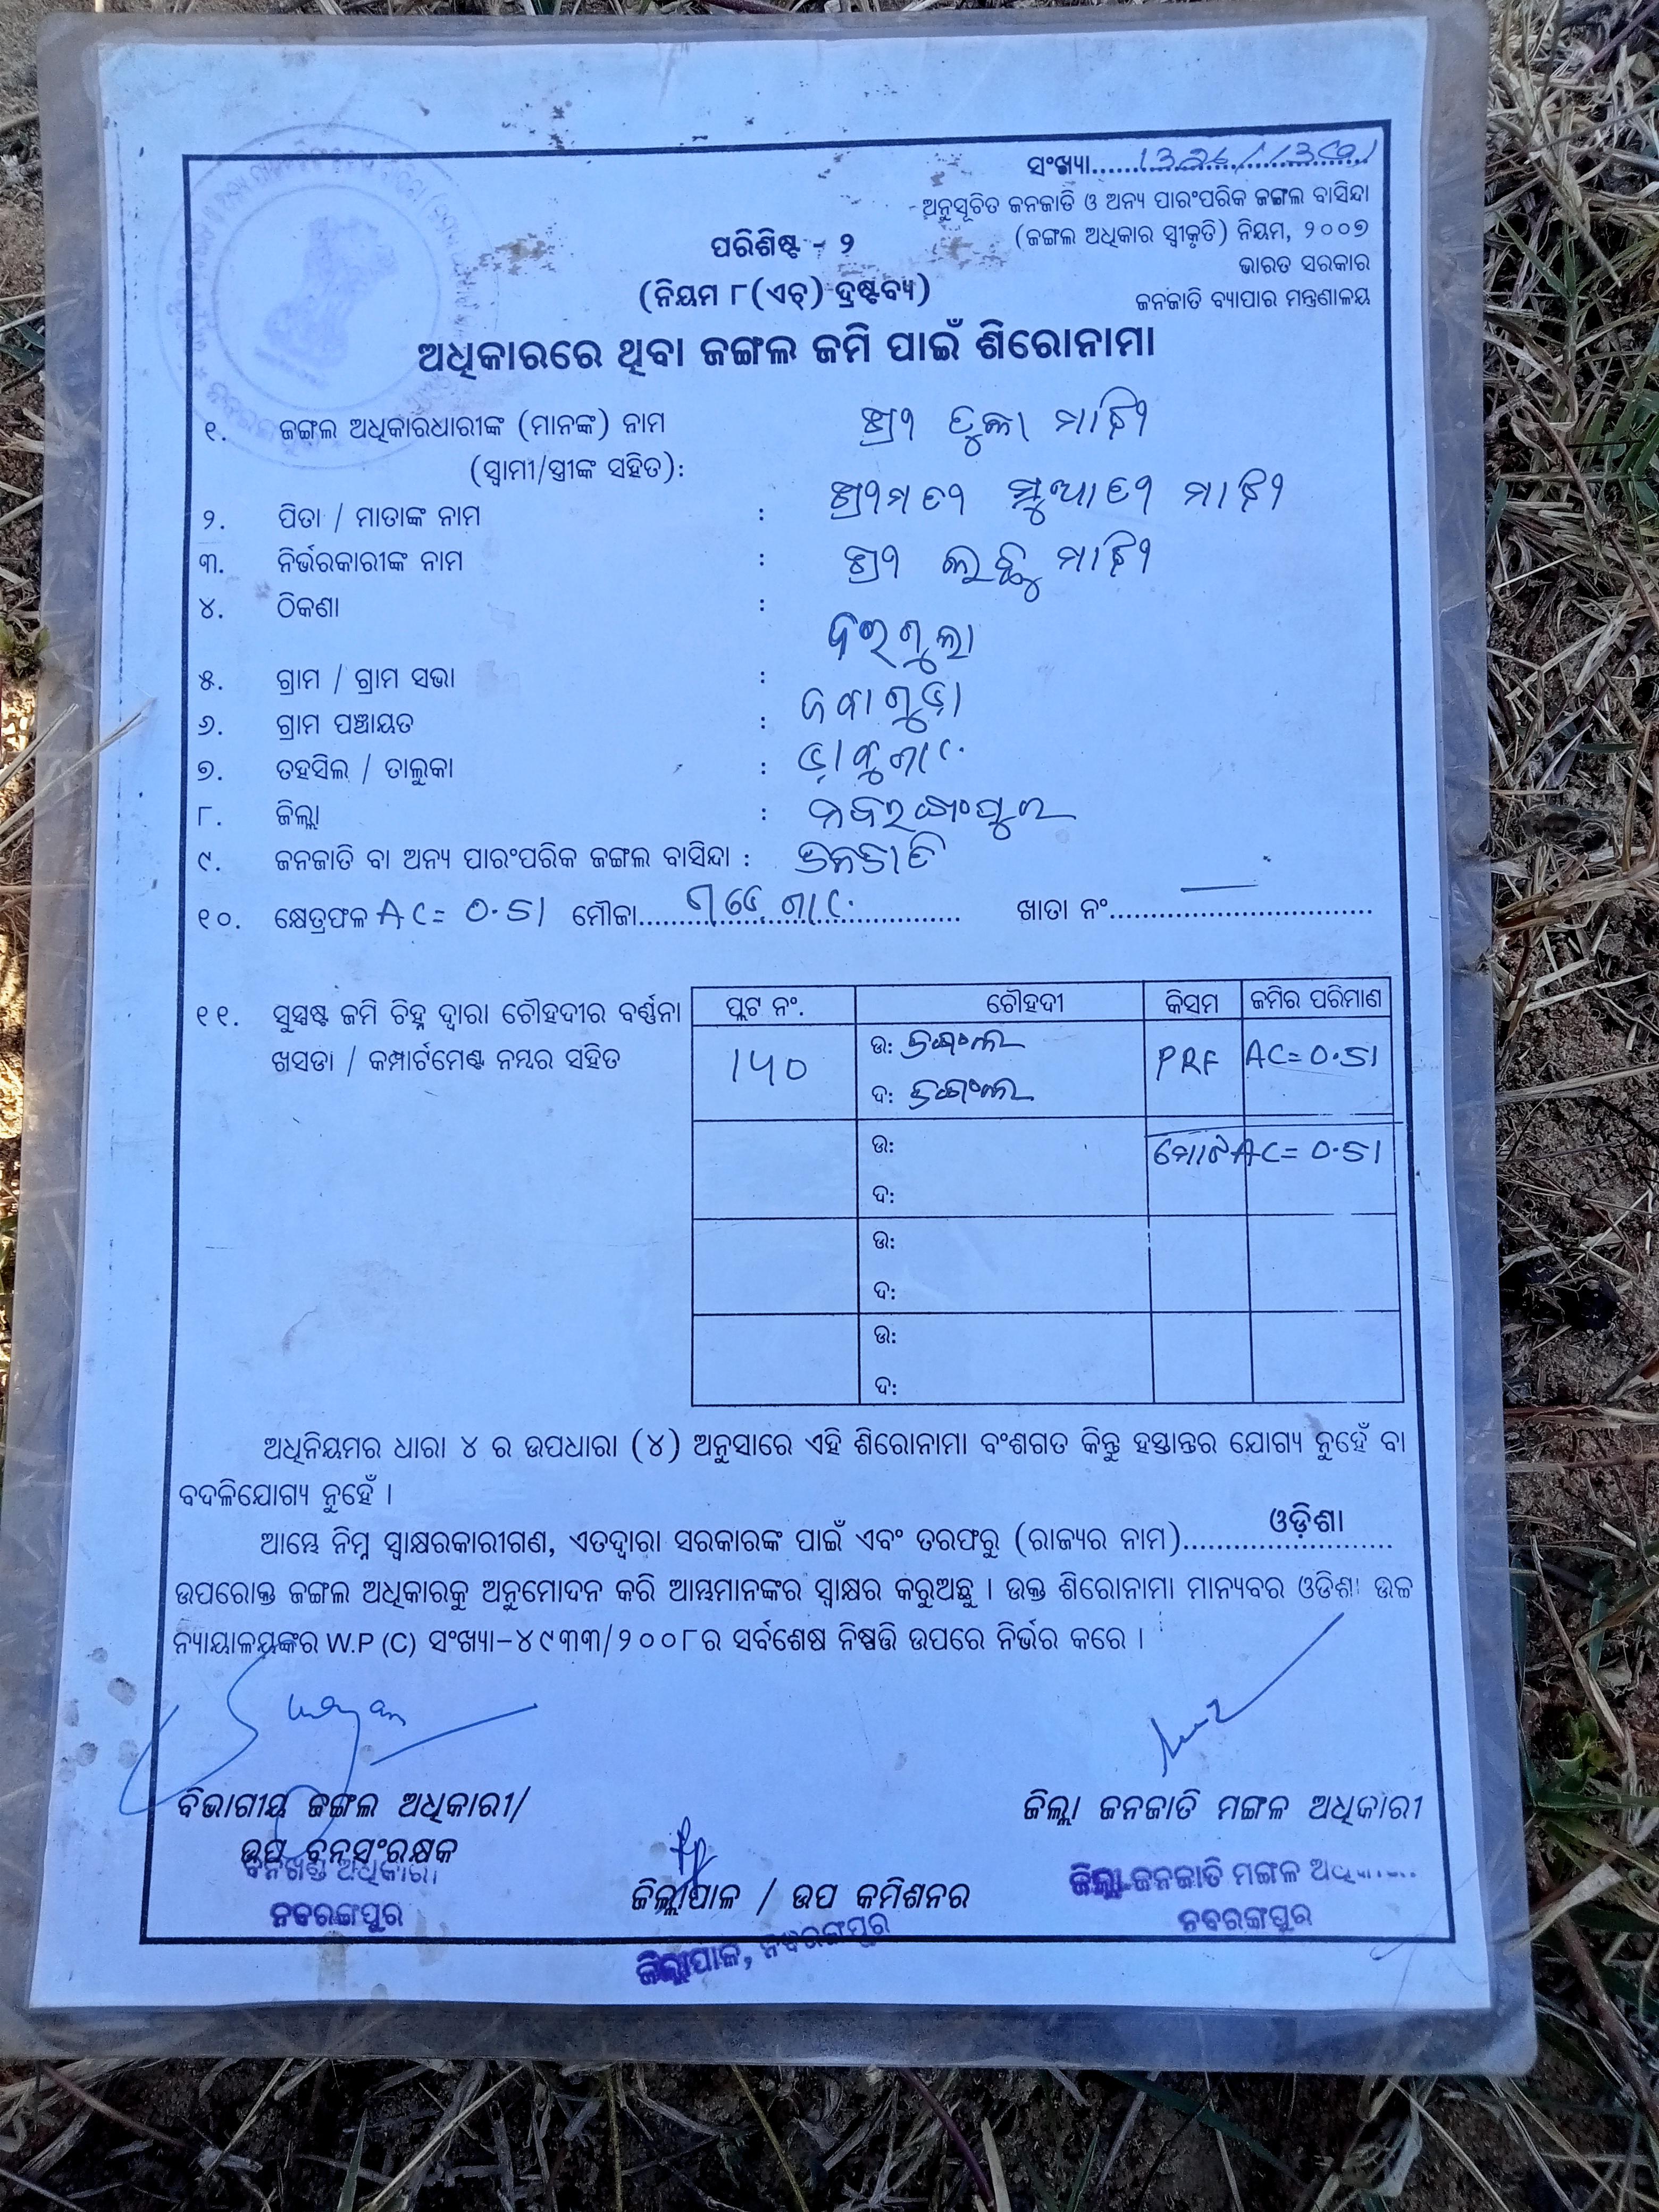 ସଂଖ୍ୟା..........
ଅନୁସୂଚିତ ଜନଜାତି ଓ ଅନ୍ୟ ପାରଂପରିକ ଜଙ୍ଗଲ ବାସିନ୍ଦା
(ଜଙ୍ଗଲ ଅଧିକାର ସ୍ୱୀକୃତି) ନିୟମ, ୨୦୦୭
ଭାରତ ସରକାର
ଜନଜାତି ବ୍ୟାପାର ମନ୍ତ୍ରଣାଳୟ
ପରିଶିଷ୍ଟ - ୨
(ନିୟମ ୮(ଏଚ୍) ଦ୍ରଷ୍ଟବ୍ୟ)
ଅଧିକାରରେ ଥିବା ଜଙ୍ଗଲ ଜମି ପାଇଁ ଶିରୋନାମା
୧. ଜଙ୍ଗଲ ଅଧିକାରଧାରୀଙ୍କ (ମାନଙ୍କ) ନାମ ଶ୍ରୀ ମାଝି
(ସ୍ୱାମୀ/ସ୍ତ୍ରୀଙ୍କ ସହିତ):
୨. ପିତା / ମାତାଙ୍କ ନାମ : ଶ୍ରୀମତୀ ମାଝି
୩. ନିର୍ଭରକାରୀଙ୍କ ନାମ : ଶ୍ରୀ ମାଝି
୪. ଠିକଣା :
୫. ଗ୍ରାମ / ଗ୍ରାମ ସଭା :
୬. ଗ୍ରାମ ପଞ୍ଚାୟତ :
୭. ତହସିଲ / ତାଲୁକା :
୮. ଜିଲ୍ଲା : ନବରଙ୍ଗପୁର
୯. ଜନଜାତି ବା ଅନ୍ୟ ପାରଂପରିକ ଜଙ୍ଗଲ ବାସିନ୍ଦା : ଜନଜାତି
୧୦. କ୍ଷେତ୍ରଫଳ AC= 0.51 ମୌଜା.......... ଖାତା ନଂ..........
୧୧. ସୁସ୍ପଷ୍ଟ ଜମି ଚିହ୍ନ ଦ୍ୱାରା ଚୌହଦୀର ବର୍ଣ୍ଣନା
ଖସଡା / କମ୍ପାର୍ଟମେଣ୍ଟ ନମ୍ବର ସହିତ
ପ୍ଲଟ ନଂ. ଚୌହଦୀ କିସମ ଜମିର ପରିମାଣ
140 ଉ: ଜଙ୍ଗଲ PRF AC=0.51
ଦ: ଜଙ୍ଗଲ
ଉ: ମୋଟ AC= 0.51
ଦ:
ଉ:
ଦ:
ଉ:
ଦ:
ଅଧିନିୟମର ଧାରା ୪ ର ଉପଧାରା (୪) ଅନୁସାରେ ଏହି ଶିରୋନାମା ବଂଶଗତ କିନ୍ତୁ ହସ୍ତାନ୍ତର ଯୋଗ୍ୟ ନୁହେଁ ବା
ବଦଳିଯୋଗ୍ୟ ନୁହେଁ ।
ଆମ୍ଭେ ନିମ୍ନ ସ୍ୱାକ୍ଷରକାରୀଗଣ, ଏତଦ୍ୱାରା ସରକାରଙ୍କ ପାଇଁ ଏବଂ ତରଫରୁ (ରାଜ୍ୟର ନାମ)..........ଓଡ଼ିଶା
ଉପରୋକ୍ତ ଜଙ୍ଗଲ ଅଧିକାରକୁ ଅନୁମୋଦନ କରି ଆମ୍ଭମାନଙ୍କର ସ୍ୱାକ୍ଷର କରୁଅଛୁ । ଉକ୍ତ ଶିରୋନାମା ମାନ୍ୟବର ଓଡିଶା ଉଚ୍ଚ
ନ୍ୟାୟାଳୟଙ୍କର W.P (C) ସଂଖ୍ୟା-୪୯୩୩/୨୦୦୮ର ସର୍ବଶେଷ ନିଷ୍ପତ୍ତି ଉପରେ ନିର୍ଭର କରେ ।
ବିଭାଗୀୟ ଜଙ୍ଗଲ ଅଧିକାରୀ/
ଉପ ବନସଂରକ୍ଷକ
ବନଖଣ୍ଡ ଅଧିକାରୀ
ନବରଙ୍ଗପୁର
ଜିଲ୍ଲାପାଳ / ଉପ କମିଶନର
ଜିଲ୍ଲାପାଳ, ନବରଙ୍ଗପୁର
ଜିଲ୍ଲା ଜନଜାତି ମଙ୍ଗଳ ଅଧିକାରୀ
ଜିଲ୍ଲା ଜନଜାତି ମଙ୍ଗଳ
ନବରଙ୍ଗପୁର